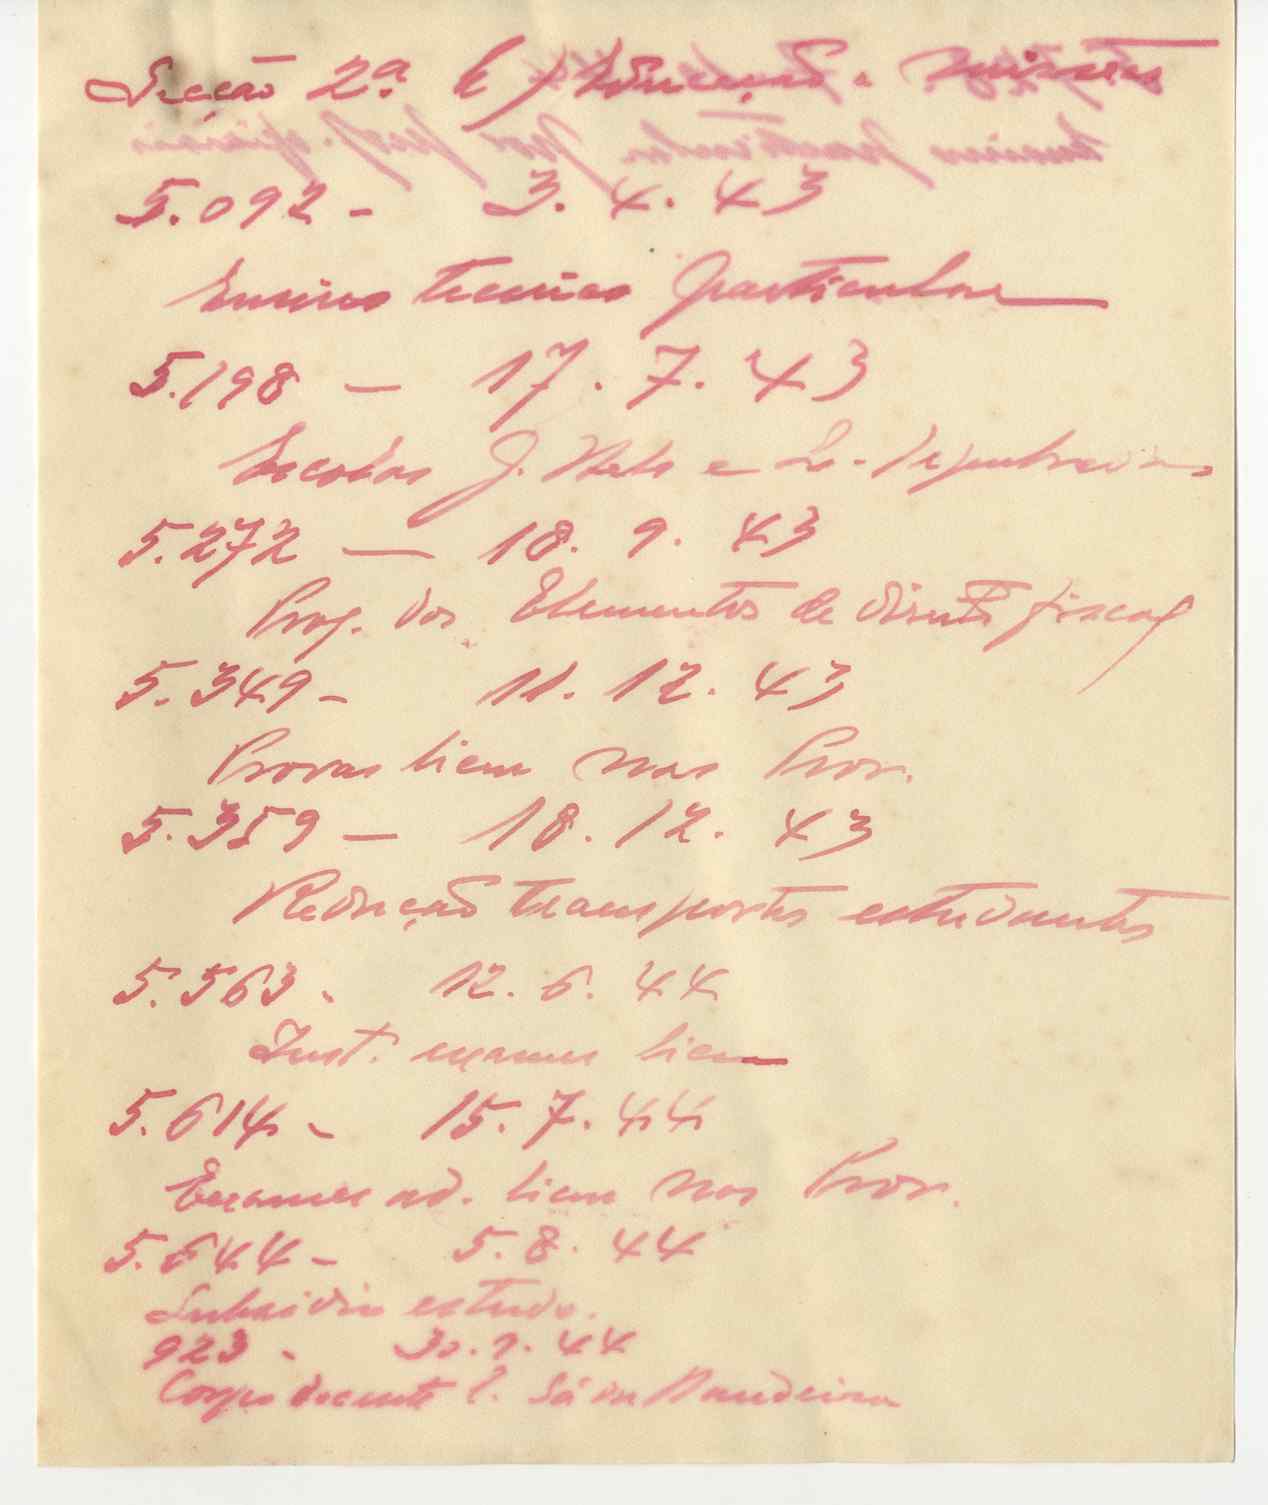 Secção 2.ª b) Educação e
5.092 - 3. 4. 43
Ensino tecnico particular
5.198 — 17. 7. 43
Escolas J. Neto e
5.272 — 18. 9. 43
Prog. dos Elementos de direito fiscal
5.349 - 11. 12. 43
Provas liceu nas Prov.
5.359 — 18. 12. 43
Redução transportes estudantes
5.563 - 12. 6. 44
Inst. exames liceu
5.614 - 15. 7. 44
Exames ad. liceu nas Prov.
5.644 - 5. 8. 44
Subsidio estudo.
923 - 30. 9. 44
Corpo docente L. Sá da Bandeira